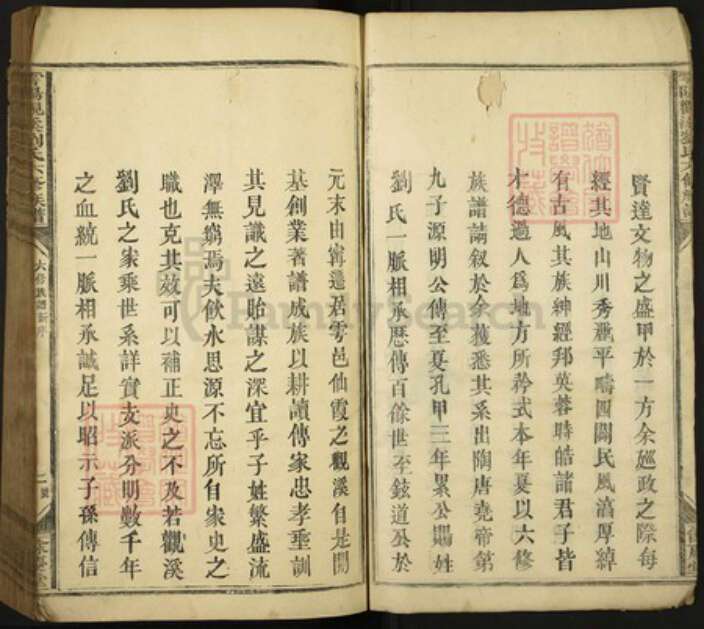 賢達文物之盛甲於一方余廵政之際每
經其地山川秀麗平疇四闢民風淳厚綽
有古風其族紳經邦英蓉時皓諸君子皆
才德過人爲地方所矜式本年夏以六修
族譜請叙於余獲悉其系出陶唐堯帝第
九子源明公傳至夏孔甲三年累公賜姓
劉氏一脈相承歷傳百餘世至鉉道公於
元末由寗遷居雩邑仙霞之觀溪自是開
基創業著譜成族以耕讀傳家忠孝垂訓
其見識之遠貽謀之深宜乎子姓繁盛流
澤無窮焉夫飲水思源不忘所自家史之
職也克其效可以補正史之不及若觀溪
劉氏之家乘世系詳實支派分明數千年
之血統一脈相承誠足以昭示子孫傳信
劉氏六修族譜
六修族譜新序
FamilySearch